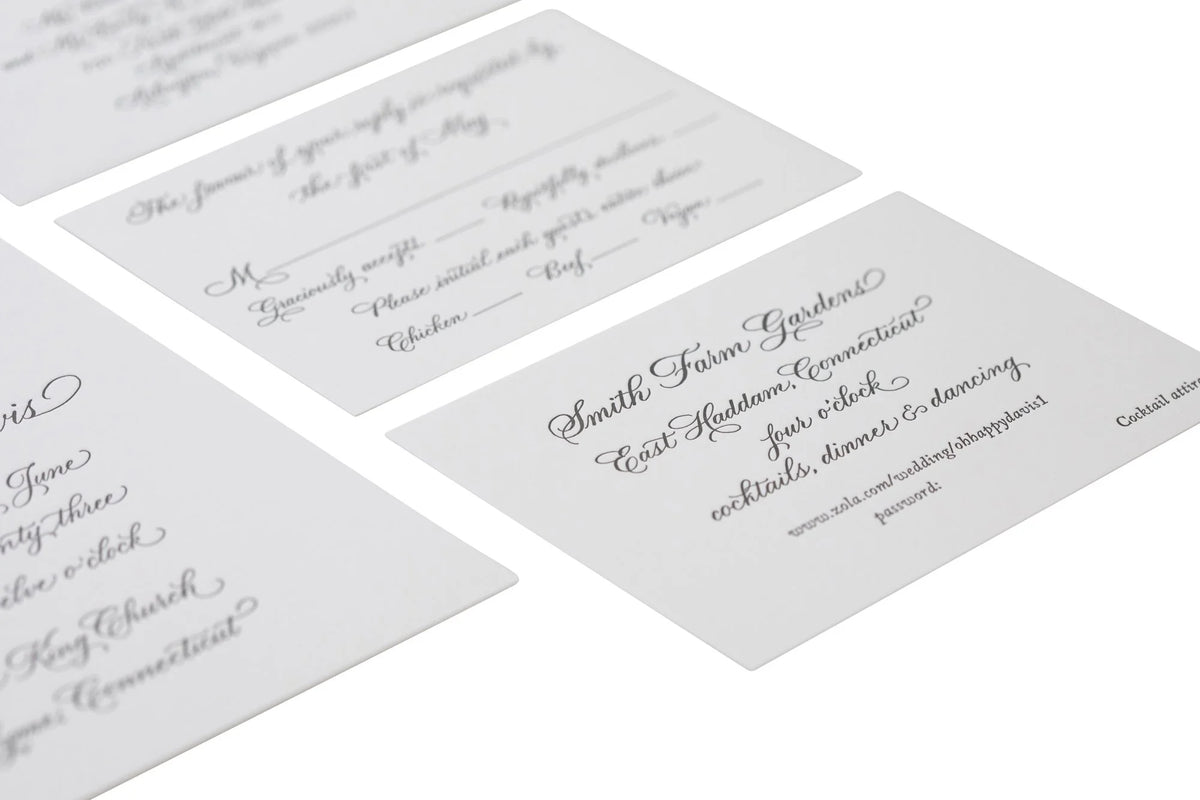 The favour of your reply is requested by
the first of May
M
Graciously accept Regretfully decline
Please initial each guest's entrée choice
Chicken Beef Vegan
vis
June
nty three
elve o'clock
King Church
Connecticut
Smith Farm Gardens
East Haddam, Connecticut
four o'clock
cocktails, dinner & dancing
www.zola.com/wedding/ohhappydavis1
password:
Cocktail attire